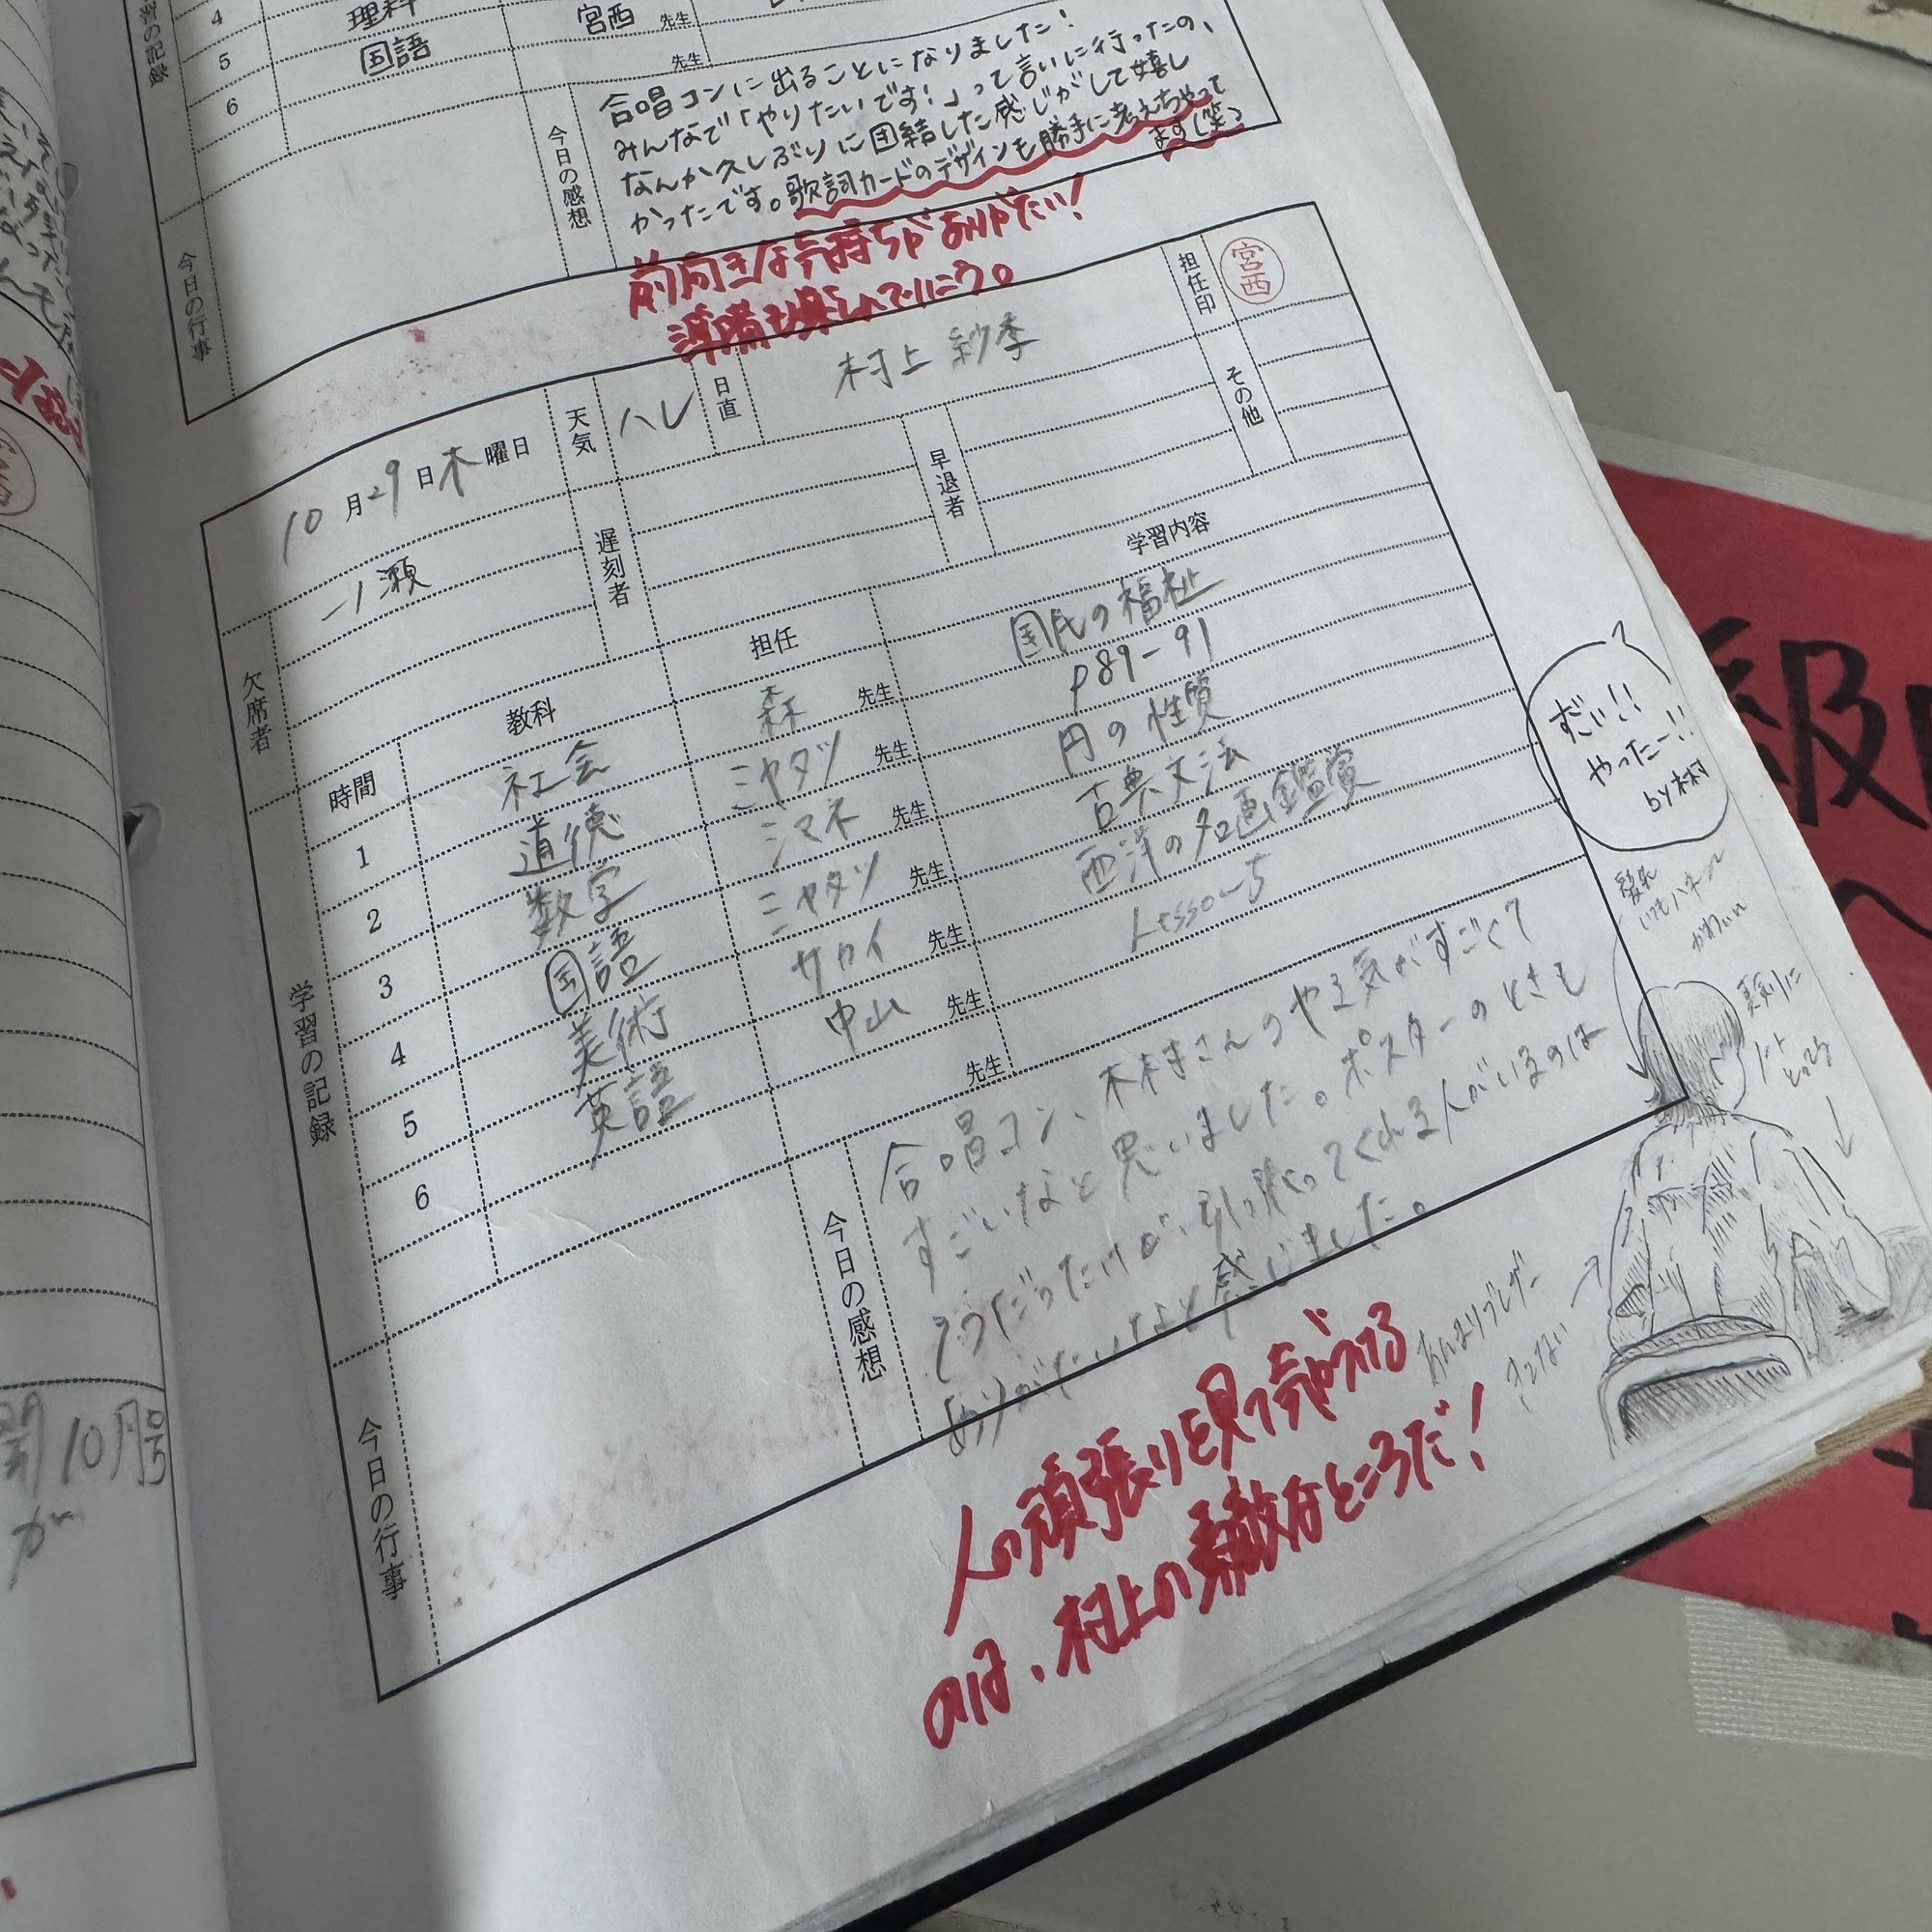 習の記録
4 理科 宮西 先生
5 国語 先生
6
今日の感想
合唱コンに出ることになりました!
みんなで「やりたいです!」って言いに行ったの、
なんか久しぶりに団結した感じがして嬉し
かったです。歌詞カードのデザインも勝手に考えちゃって
ます(笑)
今日の行事
前向きな気持ちがありがたい!
準備も楽しんでいこう。
10月29日木曜日
天気 ハレ
日直 村上 紗季
担任印 宮西
欠席者 一ノ瀬
遅刻者
早退者
その他
学習の記録
時間 教科 担任 学習内容
1 社会 森 先生 国民の福祉
2 道徳 ミヤタツ 先生 P89-91
3 数学 シマネ 先生 円の性質
4 国語 ミヤタツ 先生 古典文法
5 美術 サカイ 先生 西洋の名画鑑賞
6 英語 中山 先生 Lesson5
今日の感想
合唱コン、木村さんのやる気がすごくて
すごいなと思いました。ポスターのときも
そうだったけど、引っ張ってくれる人がいるのは
ありがたいなと感じました。
今日の行事
人の頑張りを見て気がつける
のは、村上の素敵なところだ!
すごい!!
やったー!!
by木村
いつもハネてて
かわいい
真剣に
ノート
とってる
あんまりブレザー
きてない
10月号
が
級